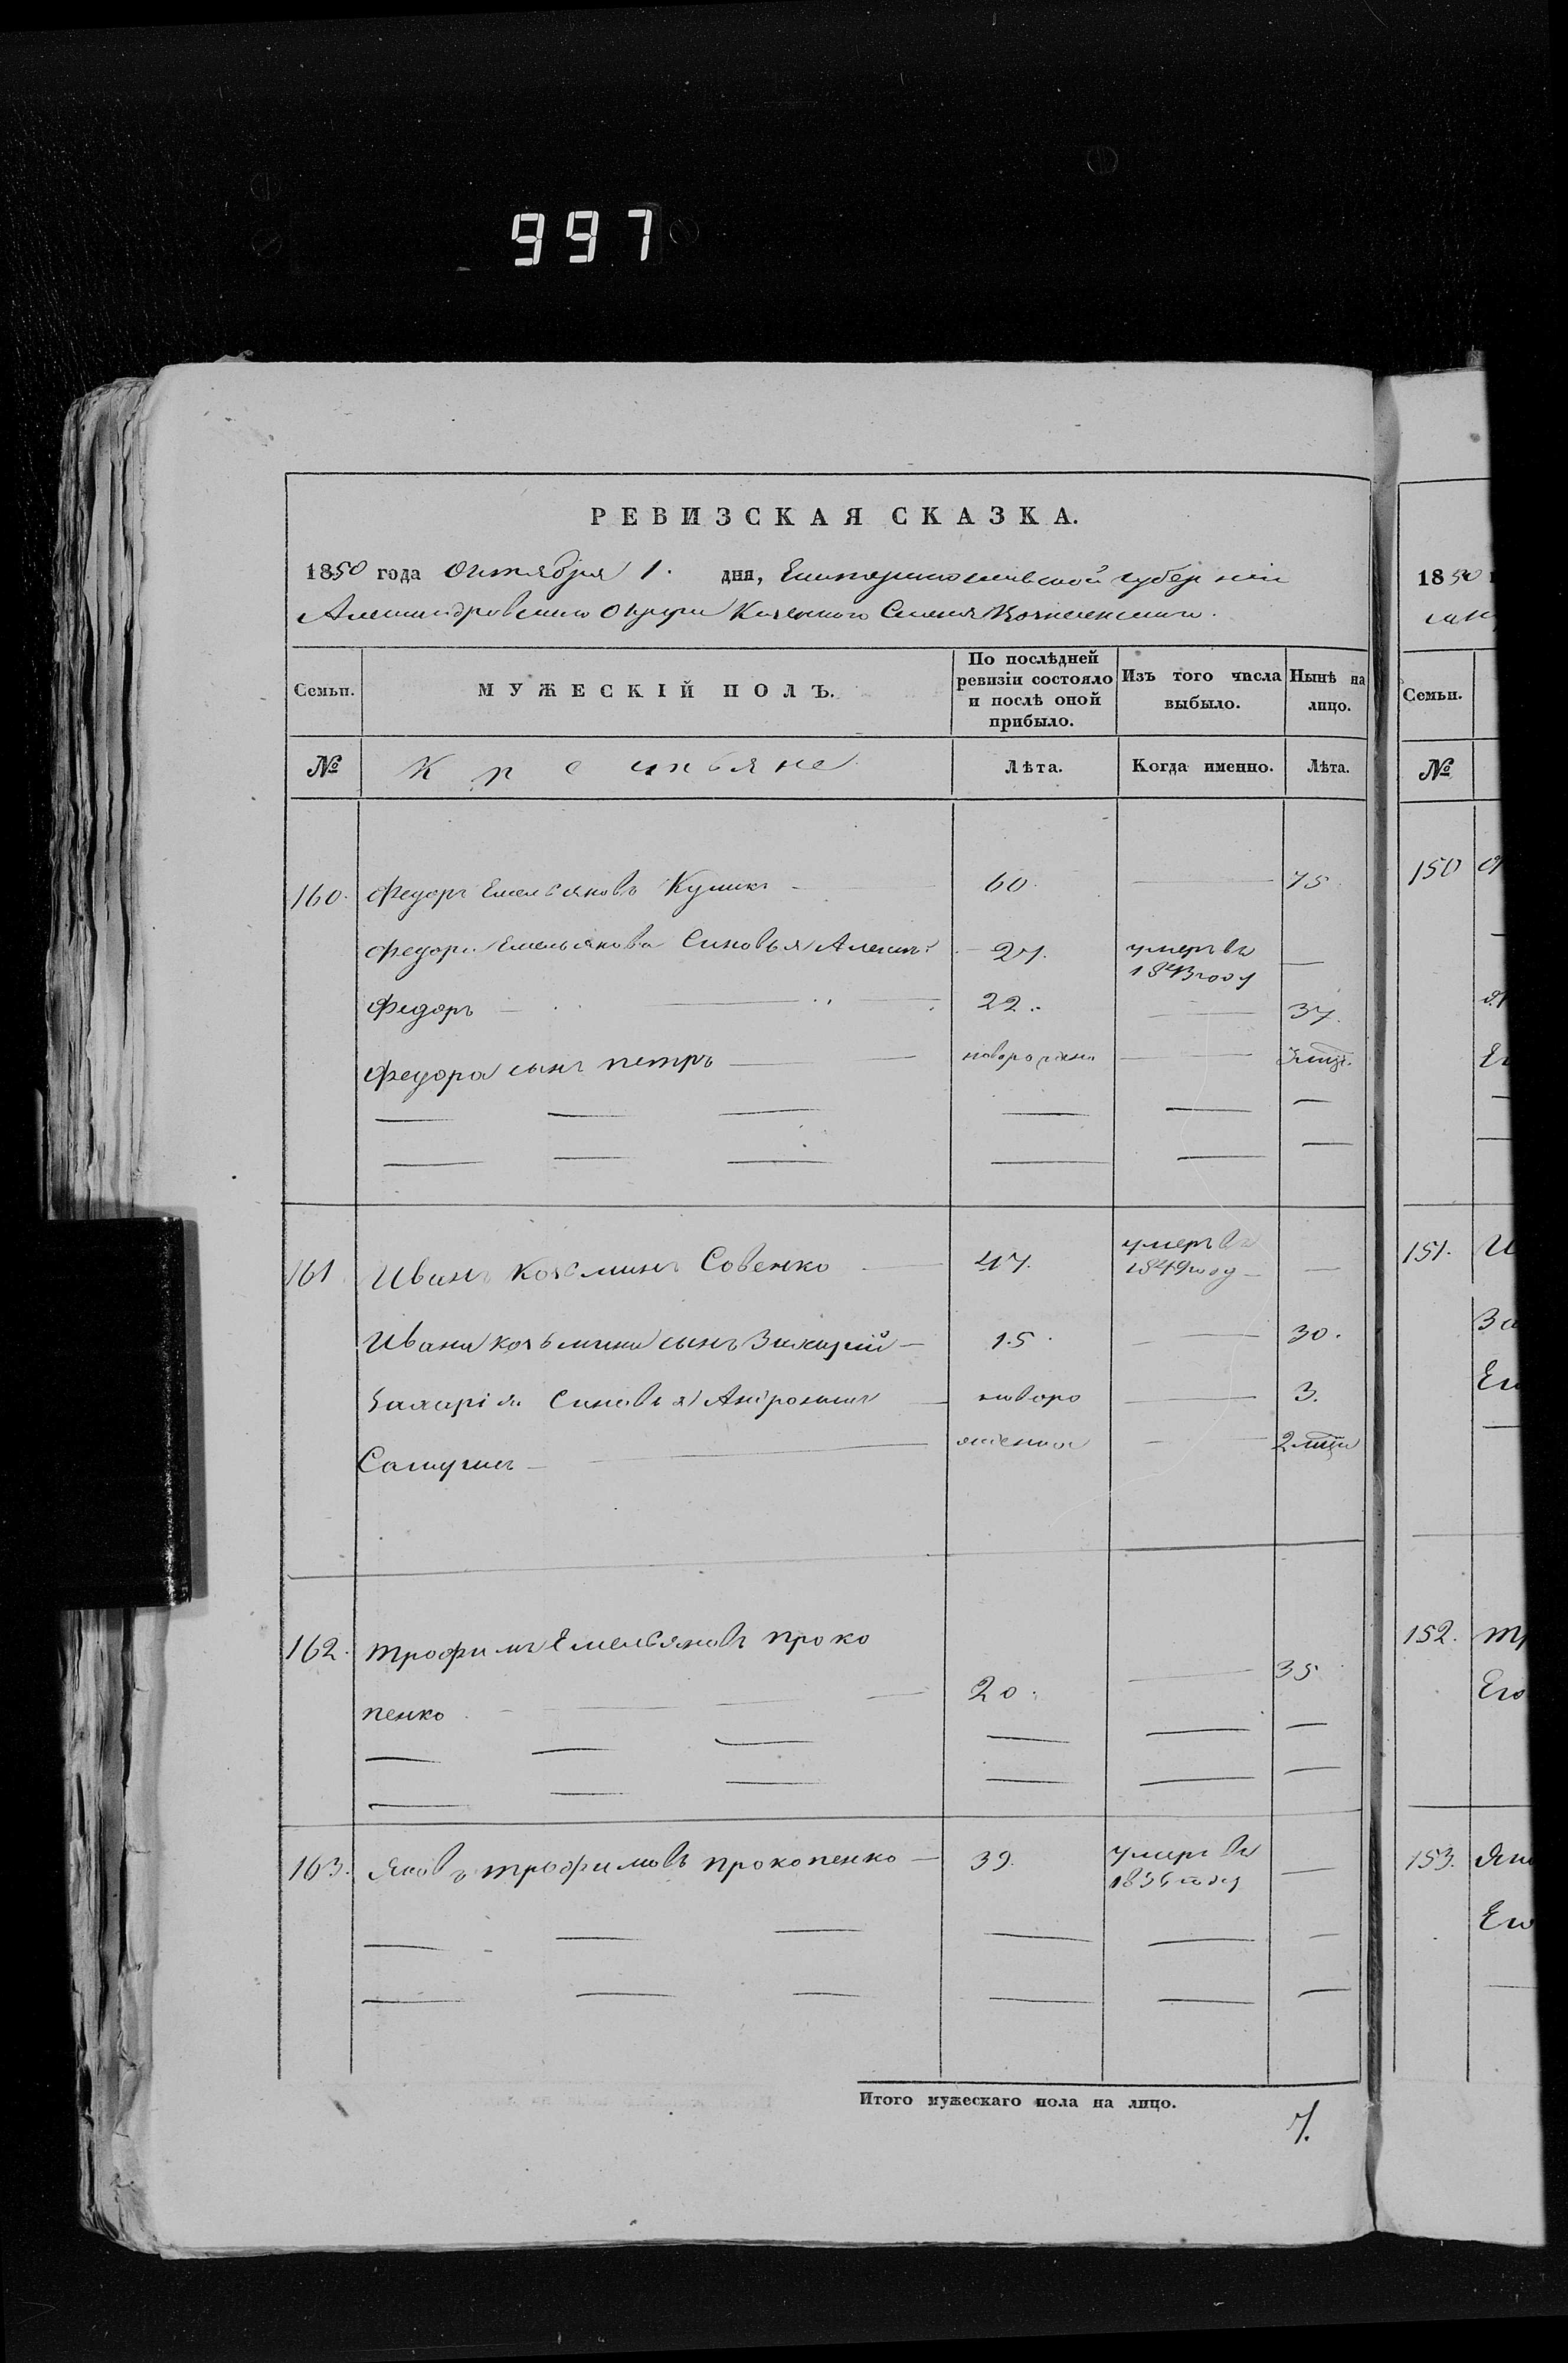 997
РЕВИЗСКАЯ СКАЗКА.
1850 года Октября 1. дня, Екатеринославской губерніи
Александровскаго Округа Казеннаго Селенія
Семьи. МУЖЕСКІЙ ПОЛЪ. По послѣдней ревизіи состояло и послѣ оной прибыло. Изъ того числа выбыло. Нынѣ на лицо.
№ Крестьяне Лѣта. Когда именно. Лѣта.
160. Федоръ Емельяновъ Куликъ 60. 75.
Федора Емельянова Сыновья Алексѣй 27. умеръ въ 1843 году
Федоръ 22. 37.
Федора сынъ петръ новорожден
161 Иванъ Козьминъ Совенко 47. умеръ въ 1849 году
Ивана козьмина сынъ Захарій 15. 30.
Захарія Сыновья Андроникъ новоро 3.
Самуилъ жденныя 2
162. трофимъ Емельяновъ проко
пенко 20. 35
163. Яковъ трофимовъ прокопенко 39. умеръ въ 1836 году
Итого мужескаго пола на лицо. 7.
1850
Семьи.
№
150
151.
За
Ег
152. тр
Его
153. Як
Ег